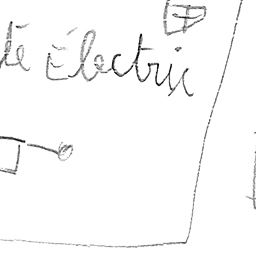 té Électric